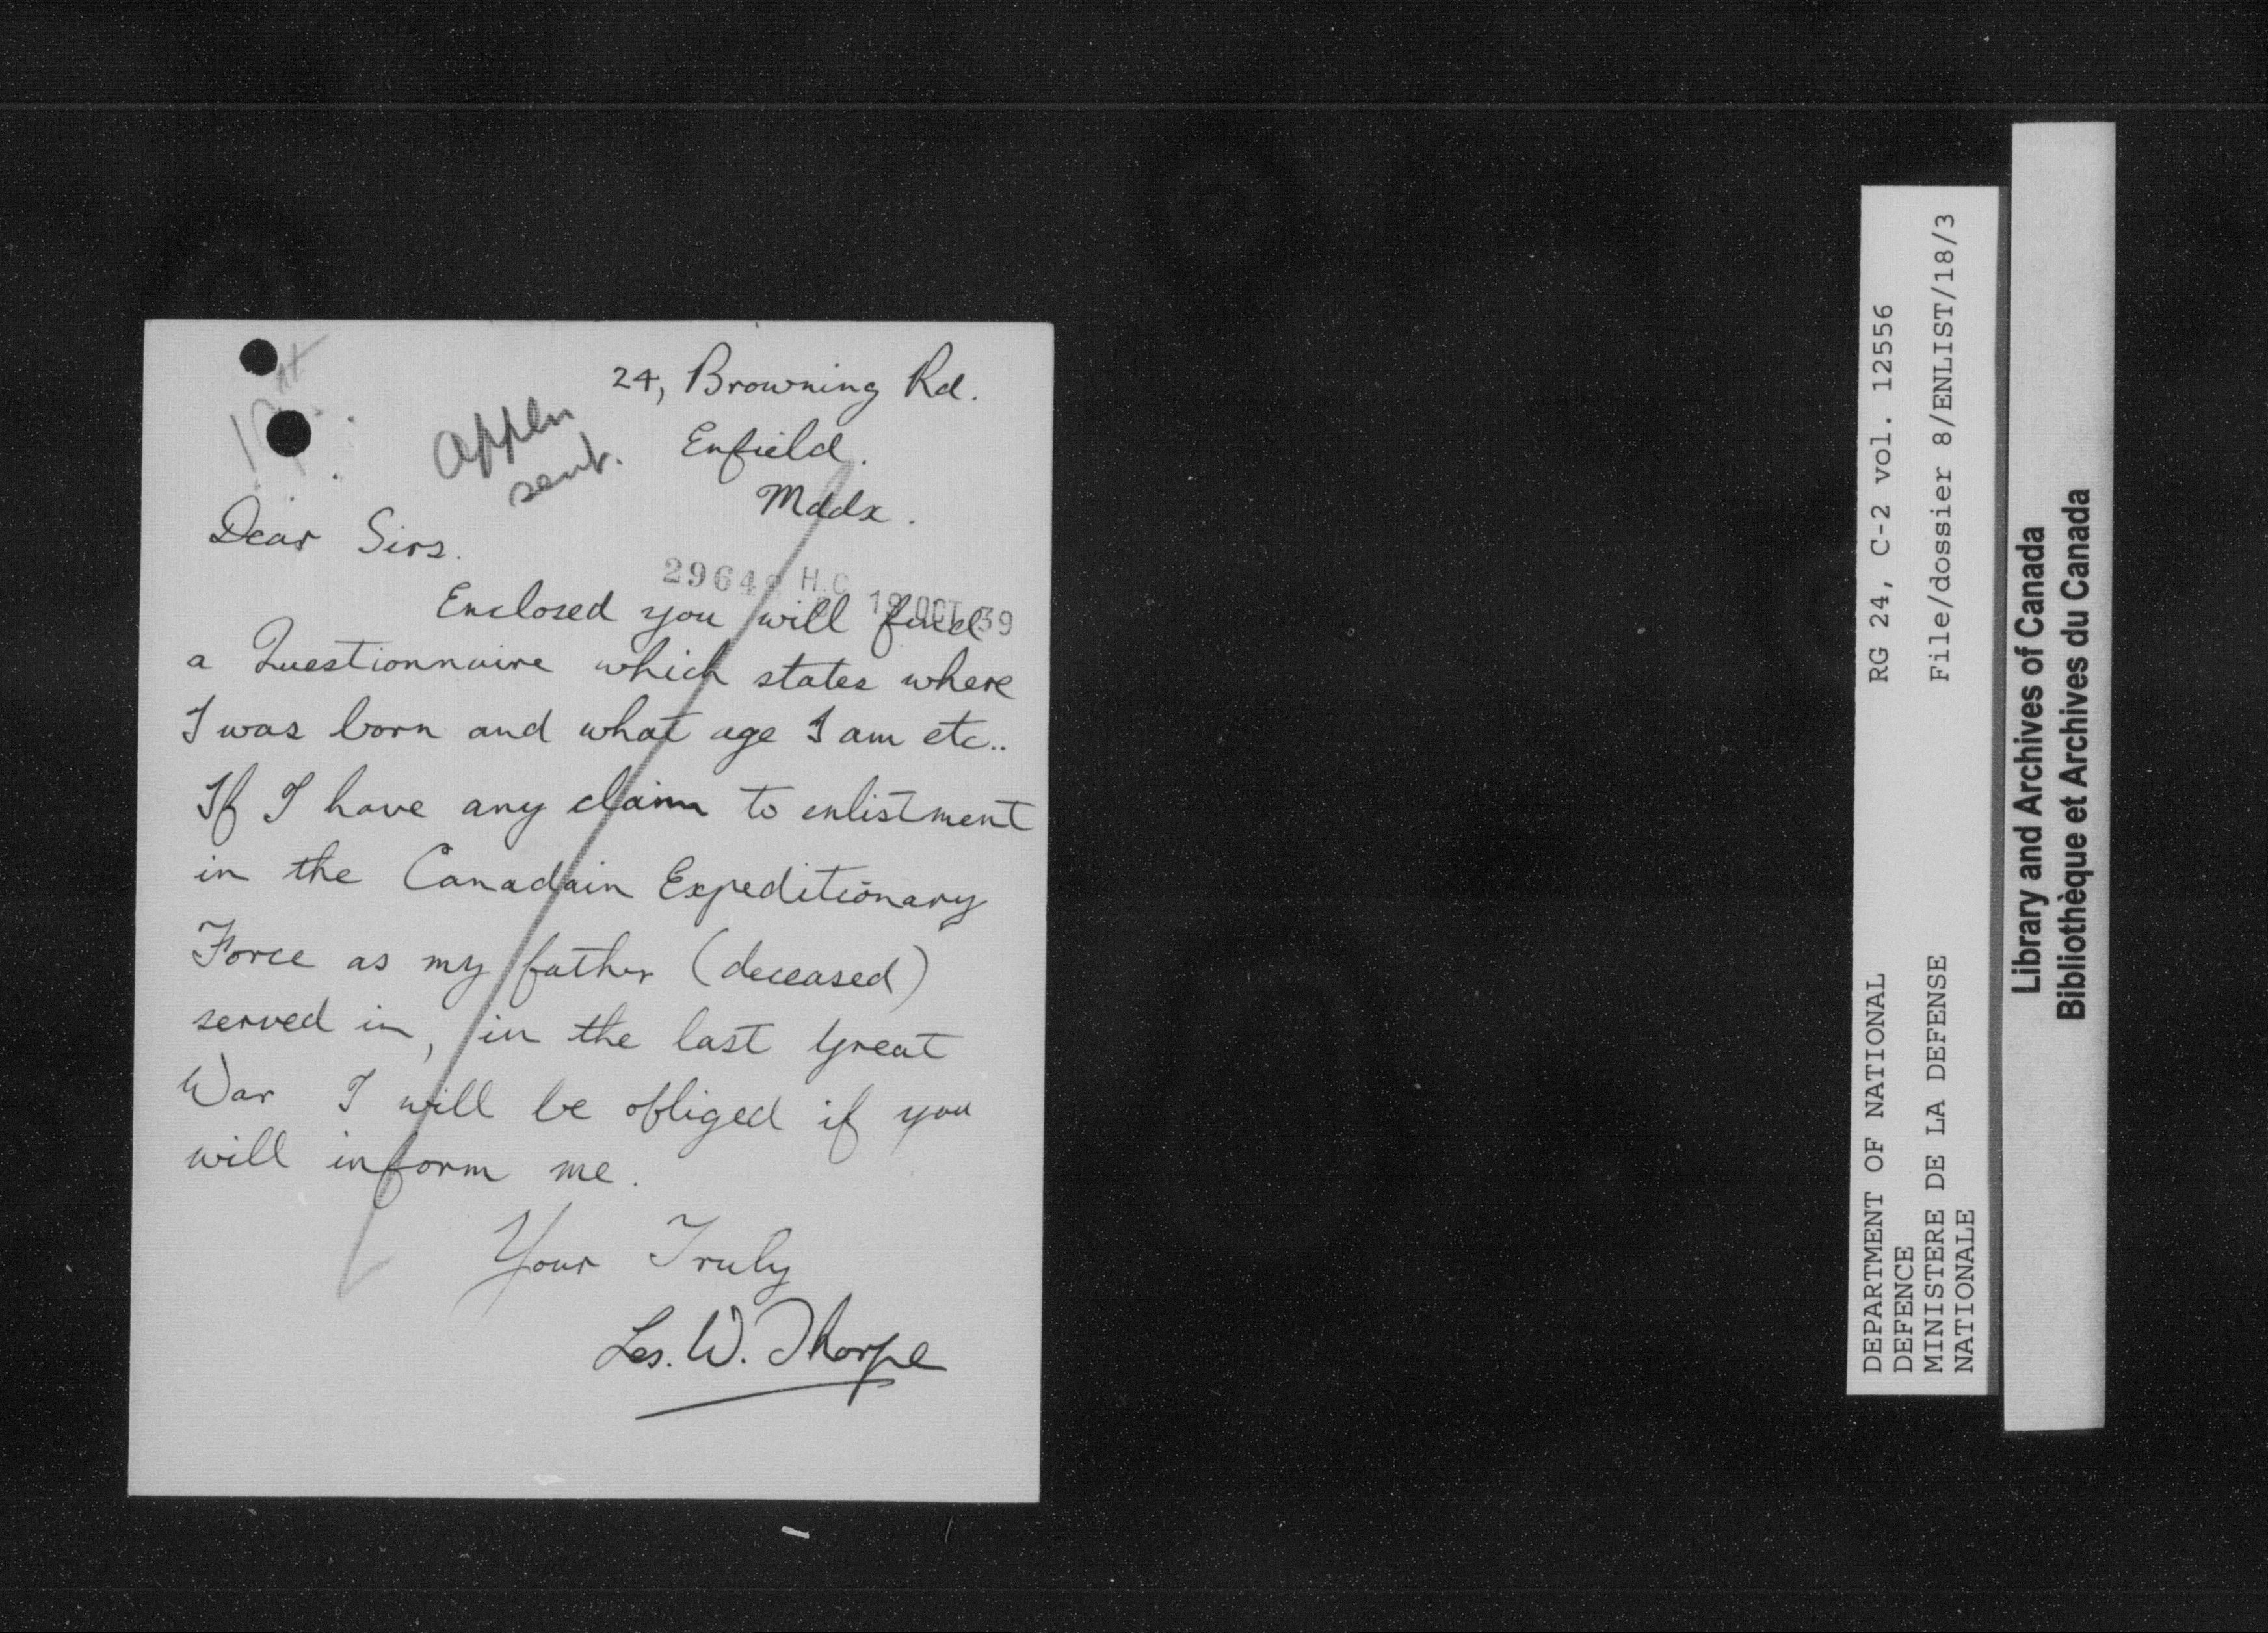 24, Browning Rd.
Enfield.
Mddx.
Appln
sent.
Dear Sirs.
2964 H.C. 19 OCT 39
Enclosed you will find
a Questionnaire which states where
I was born and what age I am etc..
If I have any claim to enlistment
in the Canadain Expeditionary
Force as my father (deceased)
served in, in the last Great
War I will be obliged if you
will inform me.
Your Truly
Les. W. Thorpe
DEPARTMENT OF NATIONAL
DEFENCE
MINISTERE DE LA DEFENSE
NATIONALE
RG 24, C-2 vol. 12556
File/dossier 8/ENLIST/18/3
Library and Archives of Canada
Bibliothèque et Archives du Canada